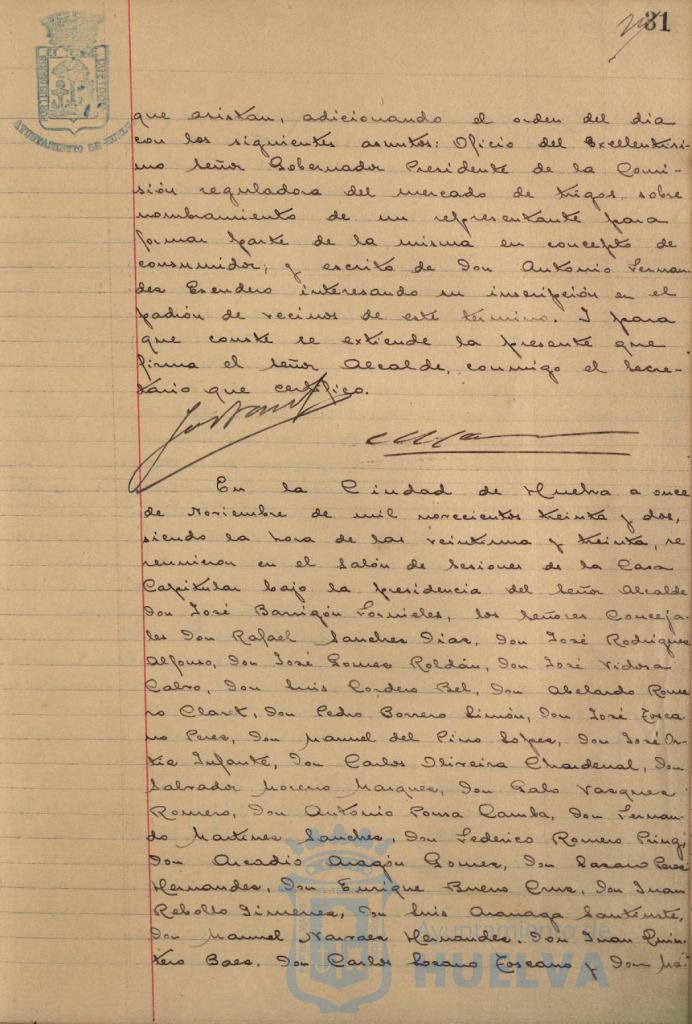 31
AYUNTAMIENTO DE HUELVA
que asistan, adicionando el orden del dia
con los siguientes asuntos: Oficio del Excellentisi-
mo Señor Gobernador Presidente de la Comi-
sión reguladora del mercado de trigos, sobre
nombramiento de un representante para
formar parte de la misma en concepto de
consumidor; y escrito de Don Antonio Fernan-
dez Escudero interesando su inscripción en el
padrón de vecinos de este término. I para
que conste se extiende la presente que
firma el Señor Alcalde, conmigo el Secre-
tario que certifico.
En la Ciudad de Huelva a once
de Noviembre de mil novecientos treinta y dos,
siendo la hora de las veintiuna y treinta, se
reunieron en el Salón de Sesiones de la Casa
Capitular bajo la presidencia del Señor Alcalde
Don José Barrigón Fornieles, los Señores Conceja-
les Don Rafael Sanchez Diaz, Don José Rodriguez
Alfonso, Don José Gomez Roldán, Don José Vidosa
Calvo, Don Luis Cordero Bel, Don Abelardo Rome-
ro Claret, Don Pedro Borrero Limón, Don José Tosca
no Perez, Don Manuel del Pino Lopez, Don José Or-
tiz Infante, Don Carlos Oliveira Chardenal, Don
Salvador Moreno Marquez, Don Galo Vazquez
Romero, Don Antonio Ponsa Camba, Don Fernan-
do Martinez Sanchez, Don Federico Romero
Don Arcadio Aragón Gomez, Don Lazaro Perez
Hernandez, Don Enrique Bueno Cruz, Don Juan
Rebollo Jimenez, Don Luis Aranaga
Don Manuel Narvaez Hernandez, Don Juan Quin-
tero Baez, Don Carlos Lozano Toscano y Don
Ayuntamiento de
HUELVA